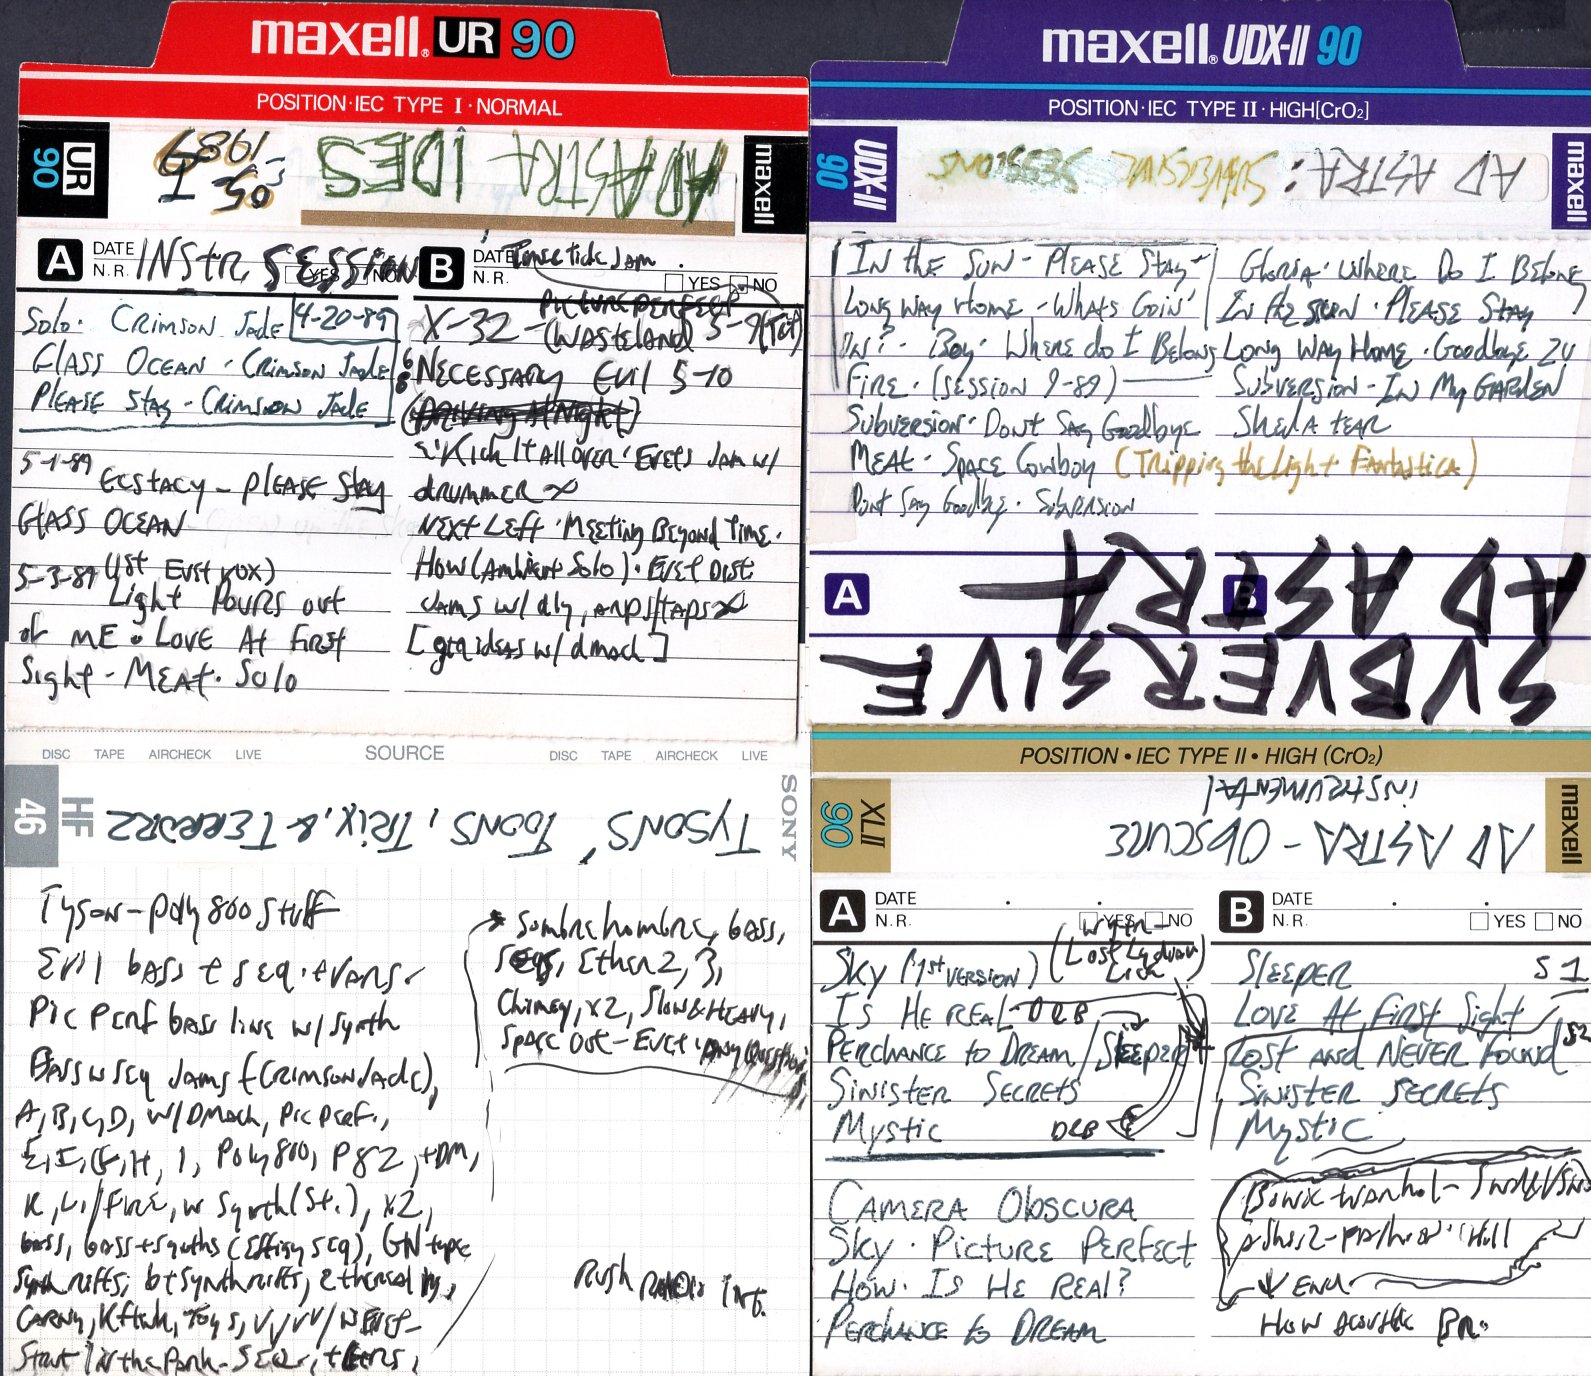 maxell. UR 90
POSITION·IEC TYPE I·NORMAL
UR 90
1989
AD ASTRA IDES
maxell
A DATE N.R. YES NO
INStR. SESSION
Solo· CRIMSON JADE 4-20-89
GLASS OCEAN · CRIMSON JADE
PLEASE STAY - CRIMSON JADE
5-1-89 ECSTACY - PLEASE STAY
GLASS OCEAN
(1st EVET VOX)
5-3-89 Light POURS out
OF ME · LOVE At First
Sight - MEAT · Solo
B DATE N.R. YES NO
Time tick Jam
PICTURE PERFECT
X-32 - (WASTELAND) 5-9
NECESSARY EVIL 5-10
(DRIVING At Night)
Kick It All over · EVETS JAM W/
dRUMMER
NEXT LEFT · MEETING BEYOND TIME ·
HOW (Ambient Solo) · EVET DIST.
JAMS W/ dly, ARPS/TAPS
[gtr ideas w/ dmach]
maxell. UDX-II 90
POSITION·IEC TYPE II·HIGH[CrO2]
UDX-II 90
AD ASTRA: SUBVERSIVE SESSIONS
maxell
IN tHE SUN - PLEASE STAY -
LONG WAY HOME - WHATS GOIN'
ON? · Boy · WHERE do I BELONG
FIRE · (SESSION 9-89)
SUBVERSION · DONT SAY GOODbye
MEAT · SPACE COWboy (TRIPPING the Light FANTASTICA)
DONT SAY GOODBYE · SUBVERSION
GLORIA · WHERE DO I BELONG
IN tHE SUN · PLEASE STAY
LONG WAY HOME · GOODBYE 24
SUBVERSION - IN MY GARDEN
SHED A TEAR
A
B
AD ASTRA
SUBVERSIVE
DISC TAPE AIRCHECK LIVE SOURCE DISC TAPE AIRCHECK LIVE
HF 46
TYSONS' TOONS, TRIX, & TERRORZ
SONY
Tyson - poly 800 stuff
Evil bass + seq. + vars.
Pic Perf bass line w/ synth
Bass w seq Jams + (CRIMSON JADE),
A, B, C, D, W/ DMach, Pic Perf.,
E, F, G, H, I, Poly 800, P82, + DM,
K, L / FIRE, w synth (st.), x2,
bass, bass + synths (Effigy seq), GN type
synth riffs, b + synth riffs,
CARNY, Toys, V, VV / W EVET -
Start In the Park -
Sombre hombre, bass,
SEQS, Ether 2, 3,
Chimey, x2, Slow & HEAVY,
Space Out - EVET · ANY QUESTIONS
Rush RADIO INT.
POSITION • IEC TYPE II • HIGH (CrO2)
XLII 90
INSTRUMENTAL
AD ASTRA - OBSCURE
maxell
A DATE N.R. YES NO
SKY (1st VERSION) (Lost Lydian Lick)
IS HE REAL - DLB
PERCHANCE to DREAM / SLEEPER
SINISTER SECRETS
MYSTIC DLB
CAMERA OBSCURA
SKY · PICTURE PERFECT
HOW · IS HE REAL?
PERCHANCE to DREAM
B DATE N.R. YES NO
SLEEPER S1
LOVE At FIRST Sight
LOST AND NEVER FOUND S2
SINISTER SECRETS
MYSTIC
Bowie - Warhol -
HOW ACOUSTIC